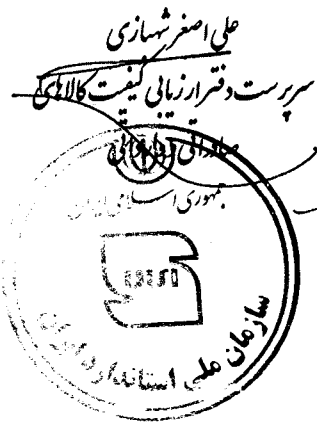 علی اصغر شهبازی
سرپرست دفتر ارزیابی کیفیت کالاهای
صادراتی و وارداتی
جمهوری اسلامی ایران
ISIRI
سازمان ملی استاندارد ایران